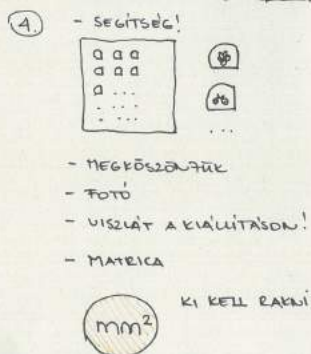 4.
- SEGÍTSÉG!
...
- MEGKÖSZÖNJÜK
- FOTÓ
- VISZLÁT A KIÁLLÍTÁSON!
- MATRICA
KI KELL RAKNI
mm²